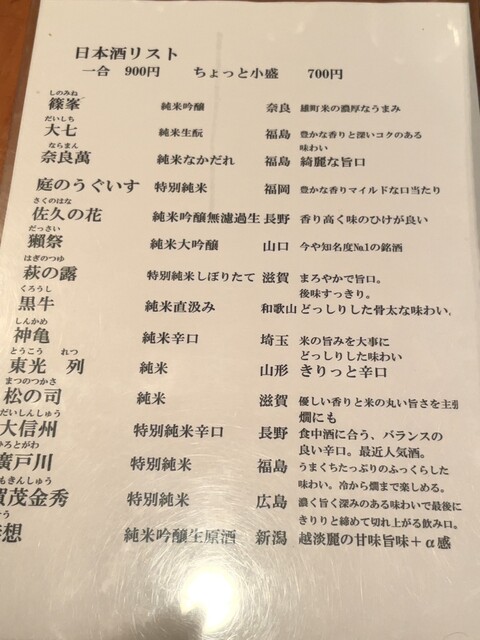 日本酒リスト
一合 900円 ちょっと小盛 700円
しのみね
篠峯 純米吟醸 奈良 雄町米の濃厚なうまみ
だいしち
大七 純米生酛 福島 豊かな香りと深いコクのある
味わい
ならまん
奈良萬 純米なかだれ 福島 綺麗な旨口
庭のうぐいす 特別純米 福岡 豊かな香りマイルドな口当たり
さくのはな
佐久の花 純米吟醸無濾過生 長野 香り高く味のひけが良い
だっさい
獺祭 純米大吟醸 山口 今や知名度No.1の銘酒
はぎのつゆ
萩の露 特別純米しぼりたて 滋賀 まろやかで旨口。
後味すっきり。
くろうし
黒牛 純米直汲み 和歌山 どっしりした骨太な味わい。
しんかめ
神亀 純米辛口 埼玉 米の旨みを大事に
どっしりした味わい
とうこう れつ
東光 列 純米 山形 きりっと辛口
まつのつかさ
松の司 純米 滋賀 優しい香りと米の丸い旨さを主張
燗にも
だいしんしゅう
大信州 特別純米辛口 長野 食中酒に合う、バランスの
良い辛口。最近人気酒。
ひろとがわ
廣戸川 特別純米 福島 うまくちたっぷりのふっくらした
味わい。冷から燗まで楽しめる。
もきんしゅう
賀茂金秀 特別純米 広島 濃く旨く深みのある味わいで最後に
きりりと締めて切れ上がる飲み口。
想 純米吟醸生原酒 新潟 越淡麗の甘味旨味＋α感